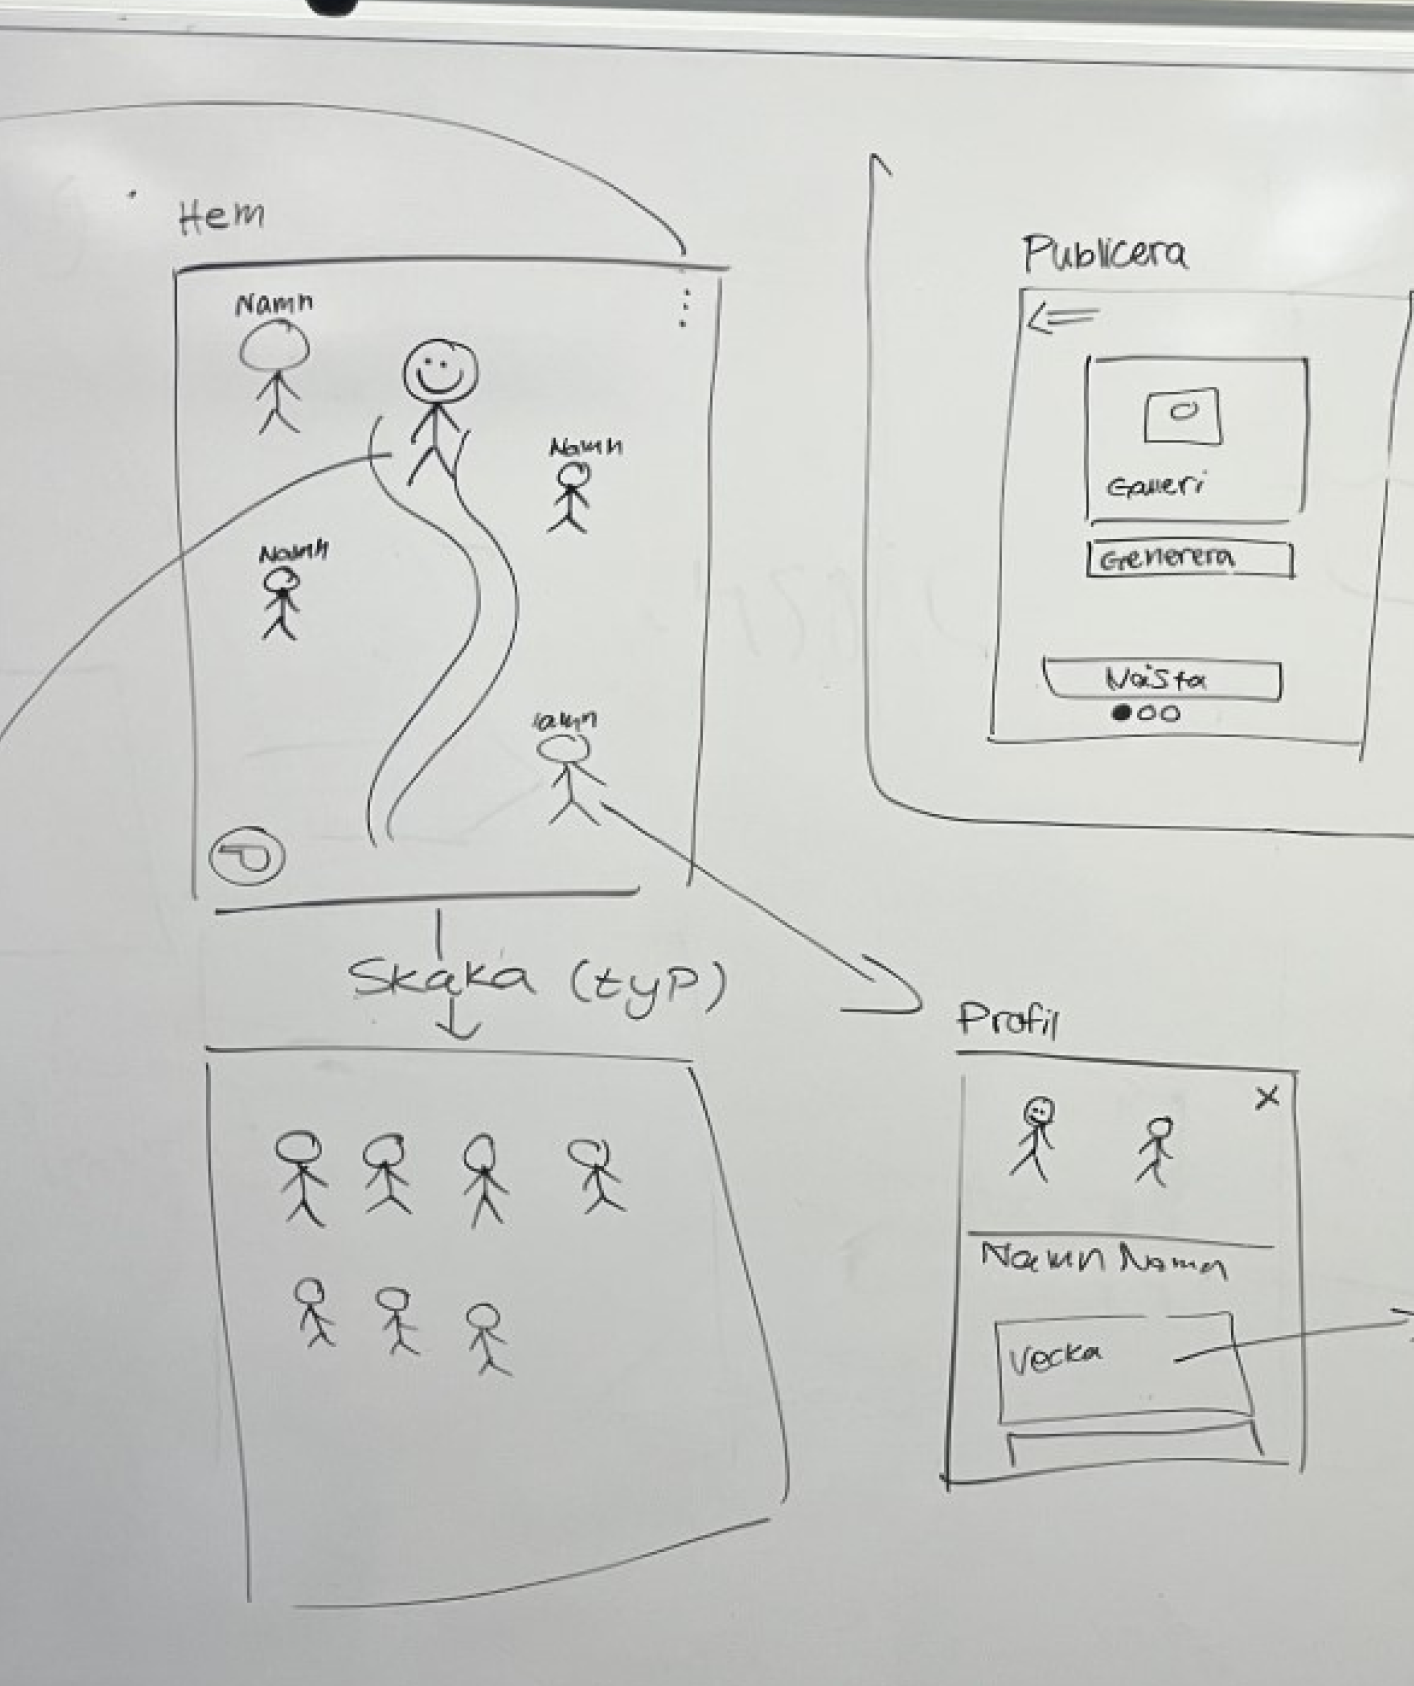 Hem
Namn
Namn
Namn
amn
P
Skaka (typ)
Publicera
Galleri
Generera
Nästa
Profil
X
Namn Namn
Vecka